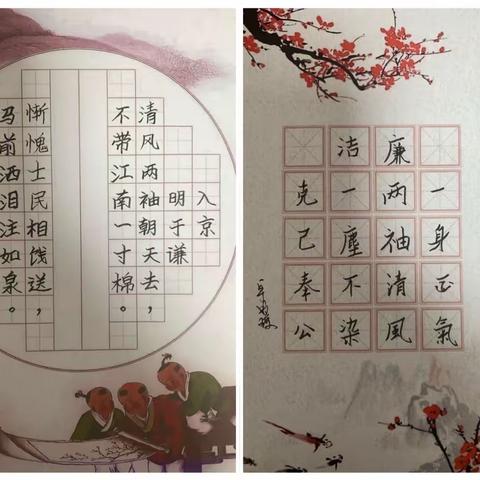 入京
明于谦
清风两袖朝天去，
不带江南一寸棉。
惭愧士民相饯送，
马前洒泪注如泉。
一身正氣
廉两袖清風
洁一塵不染
克己奉公